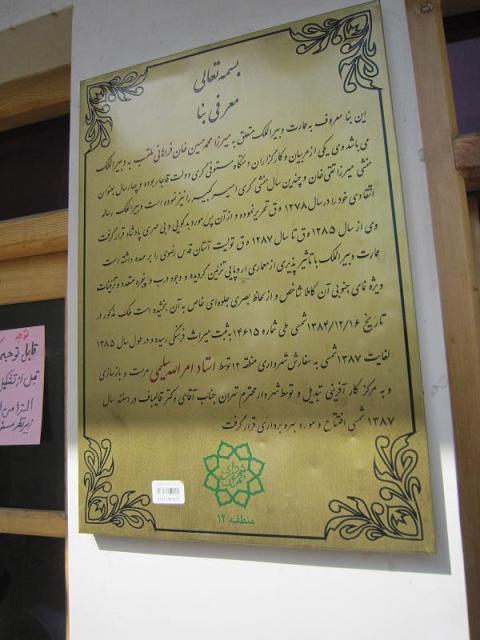 بسمه تعالی
معرفی بنا
این بنا معروف به عمارت دبیرالملک متعلق به میرزا محمدحسین خان فراهانی ملقب به دبیرالملک
می باشد وی یکی از مربیان و کارگزاران دستگاه مستوفی گری دولت قاجار بوده و چهار سال بعنوان
منشی میرزا تقی خان و چندین سال منشی گری امیر کبیر را نیز نموده است دبیرالملک رساله
انتقادی خود را در سال ۱۲۷۸ ه ق تحریر نموده و از آن پس مورد بدگویی و بی مهری پادشاه قرار گرفت
وی از سال ۱۲۸۵ ه ق تا سال ۱۲۸۷ ه ق تولیت آستان قدس رضوی را بر عهده داشته است
عمارت دبیرالملک با تاثیر پذیری از معماری اروپایی تزئین گردیده و وجود درب و پنجره متعدد و تزئینات
ویژه نمای جنوبی آن کاملا شاخص و از لحاظ بصری جلوه‌ای خاص به آن بخشیده است ملک مذکور در
تاریخ ۱۳۸۴/۱۲/۱۶ شمسی طی شماره ۱۴۶۱۵ به ثبت میراث فرهنگی رسیده و در طول سال ۱۳۸۵
لغایت ۱۳۸۷ شمسی به سفارش شهرداری منطقه ۱۲ توسط استاد امرالله سلیمی مرمت و بازسازی
و به مرکز کارآفرینی تبدیل و توسط شهردار محترم تهران جناب آقای دکتر قالیباف در اسفند سال
۱۳۸۷ شمسی افتتاح و مورد بهره برداری قرار گرفت
شهرداری تهران
منطقه ۱۲
توجه
قابل توجه
قبل از تشکیل
الزامی